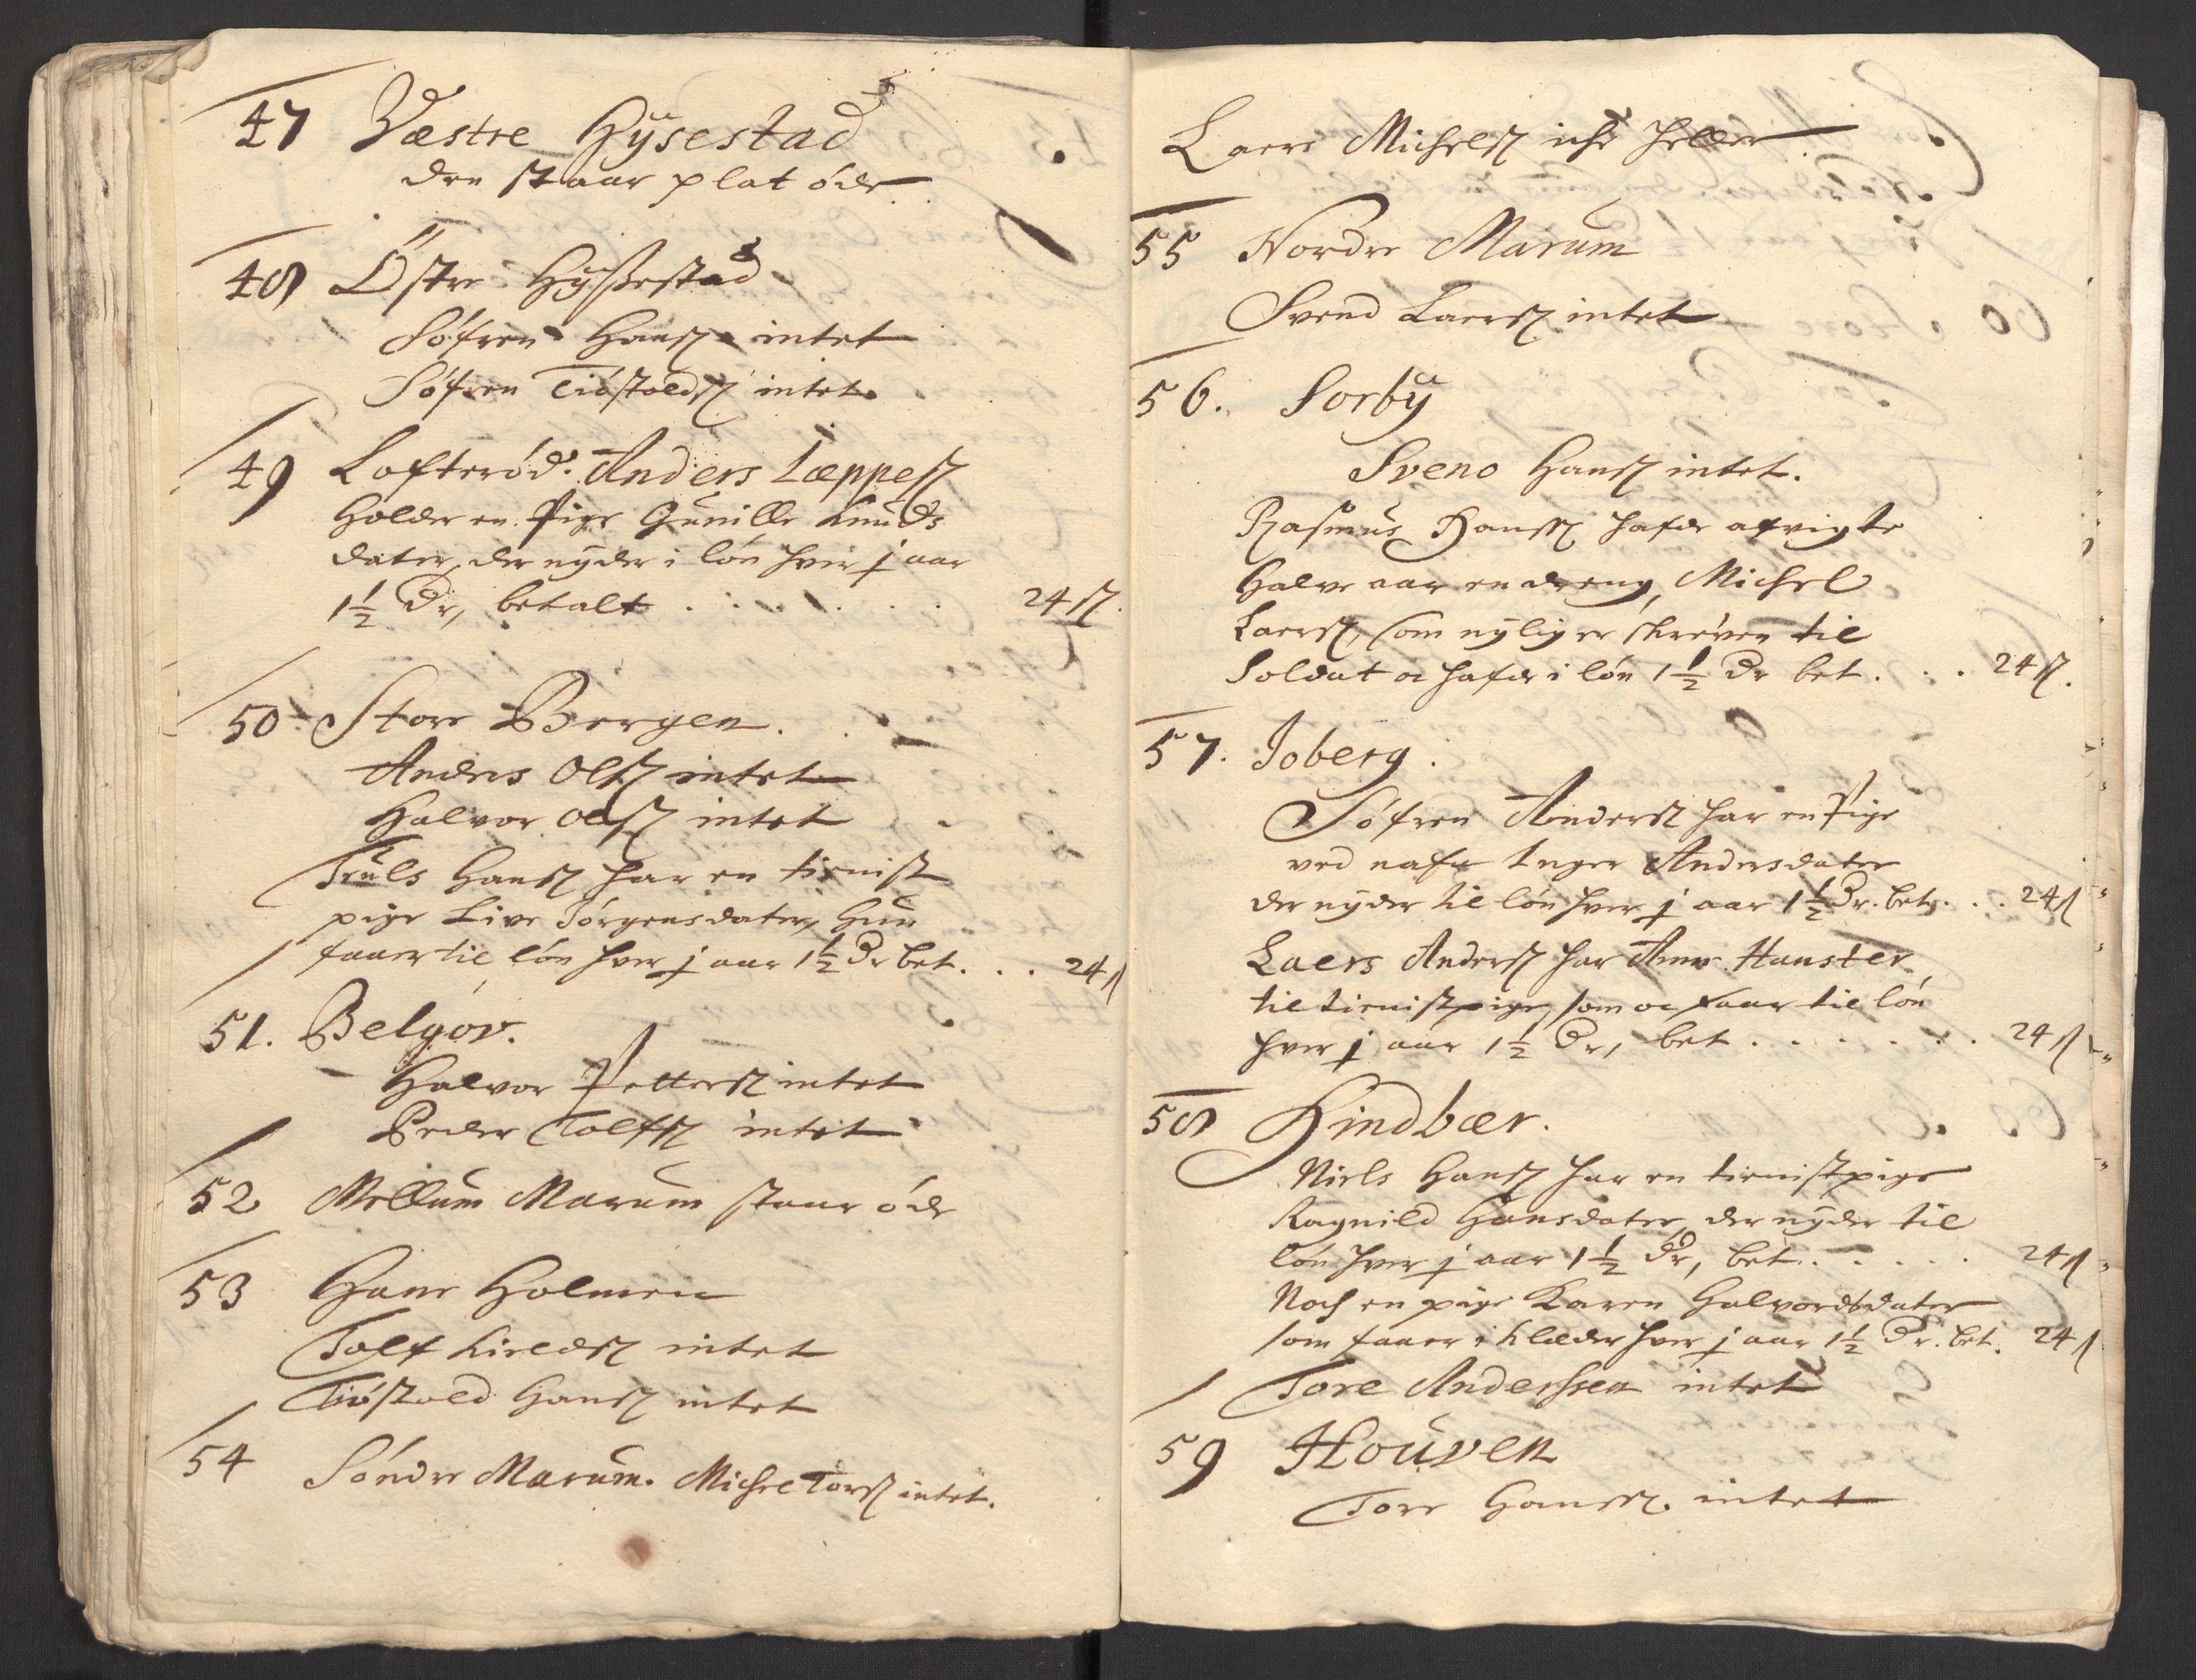 47 Væstre Hÿsestad
den staar plat öde
48 Östre Hÿssestad
Söfren Hans: intet
Söfren Tiöstolds: intet
49 Lofteröd. Anders Læppes:
Holder en Pige Gunille Knuds
dater, der nÿder i lön hver j aar
1½ Dr, betalt . . . . . . 24 s.
50 Store Bergen.
Anders Ols: intet
Halvor Ols: intet
Truls Hans: har en tienist
pige Live Jörgensdater, Hun
faaer til lön hver j aar 1½ Dr bet. . . 24 s
51. Belgov.
Halvor Petters: intet
Peder Tolfs: intet
52 Mellum Marum staar öde
53 Hane Holmen
Tolf Kields: intet
Tiöstold Hans: intet
54 Söndre Marum. Michel Tors: intet.
Laers Michels: icke heller
55 Nordre Marum
Svend Laers: intet
56. Sorbÿ
Sveno Hans: intet.
Rasmus Hanss: hafde afvigte
halve aar en dreng, Michel
Laers:, som nÿlig er skreven til
Soldat oc hafde i lön 1½ Dr bet. . . 24 s.
57. Joberg.
Söfren Anders: har en Pige
ved nafn Inger Andersdater
der nÿder til lön hver j aar 1½ Dr. bet. . . 24 s
Laers Anders: har Anne Hanster
til tienistpige, som oc faar til lön
hver j aar 1½ Dr, bet . . . . . . . 24 s
58 Hindbær.
Niels Hans: har en tienistpige
Ragnild Hansdater, der nÿder til
lön hver j aar 1½ Dr, bet. . . . . . 24 s
Noch en pige Karen Halvordsdater
som faaer i Klæder hver j aar 1½ Dr. bet. 24 s
Tore Anderssen intet
59 Houven
Tore Hanss. intet